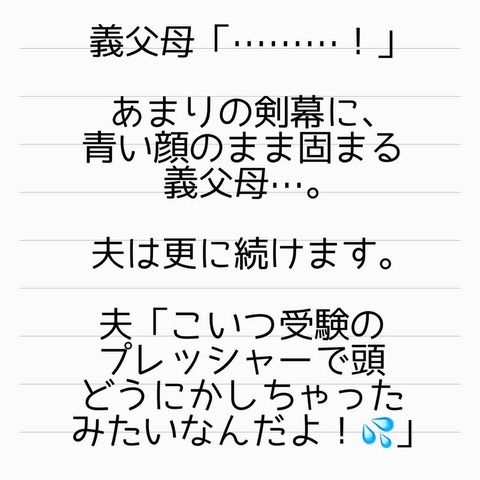 義父母「………！」
あまりの剣幕に、
青い顔のまま固まる
義父母…。
夫は更に続けます。
夫「こいつ受験の
プレッシャーで頭
どうにかしちゃった
みたいなんだよ！💦」